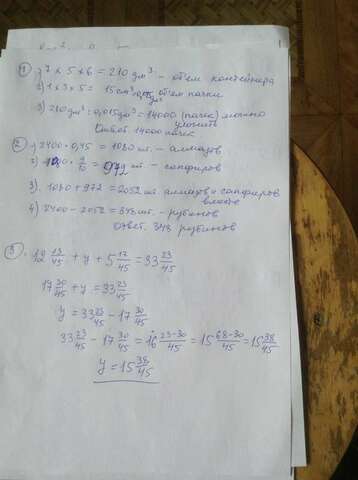 ① 1) 7 × 5 × 6 = 210 дм³ - объем контейнера
2) 1 × 3 × 5 = 15 см³ = 0,015 дм³ объем пачки
3) 210 дм³ : 0,015 дм³ = 14000 (пачек) можно уложить
Ответ 14000 пачек
② 1) 2400 · 0,45 = 1080 шт. - алмазов
2) 1080 · 9/10 = 972 шт. - сапфиров
3). 1080 + 972 = 2052 шт. алмазов и сапфиров вместе
4) 2400 - 2052 = 348 шт. - рубинов
Ответ. 348 рубинов
③ 12 13/45 + y + 5 17/45 = 33 23/45
17 30/45 + y = 33 23/45
y = 33 23/45 - 17 30/45
33 23/45 - 17 30/45 = 16 23-30/45 = 15 68-30/45 = 15 38/45
y = 15 38/45